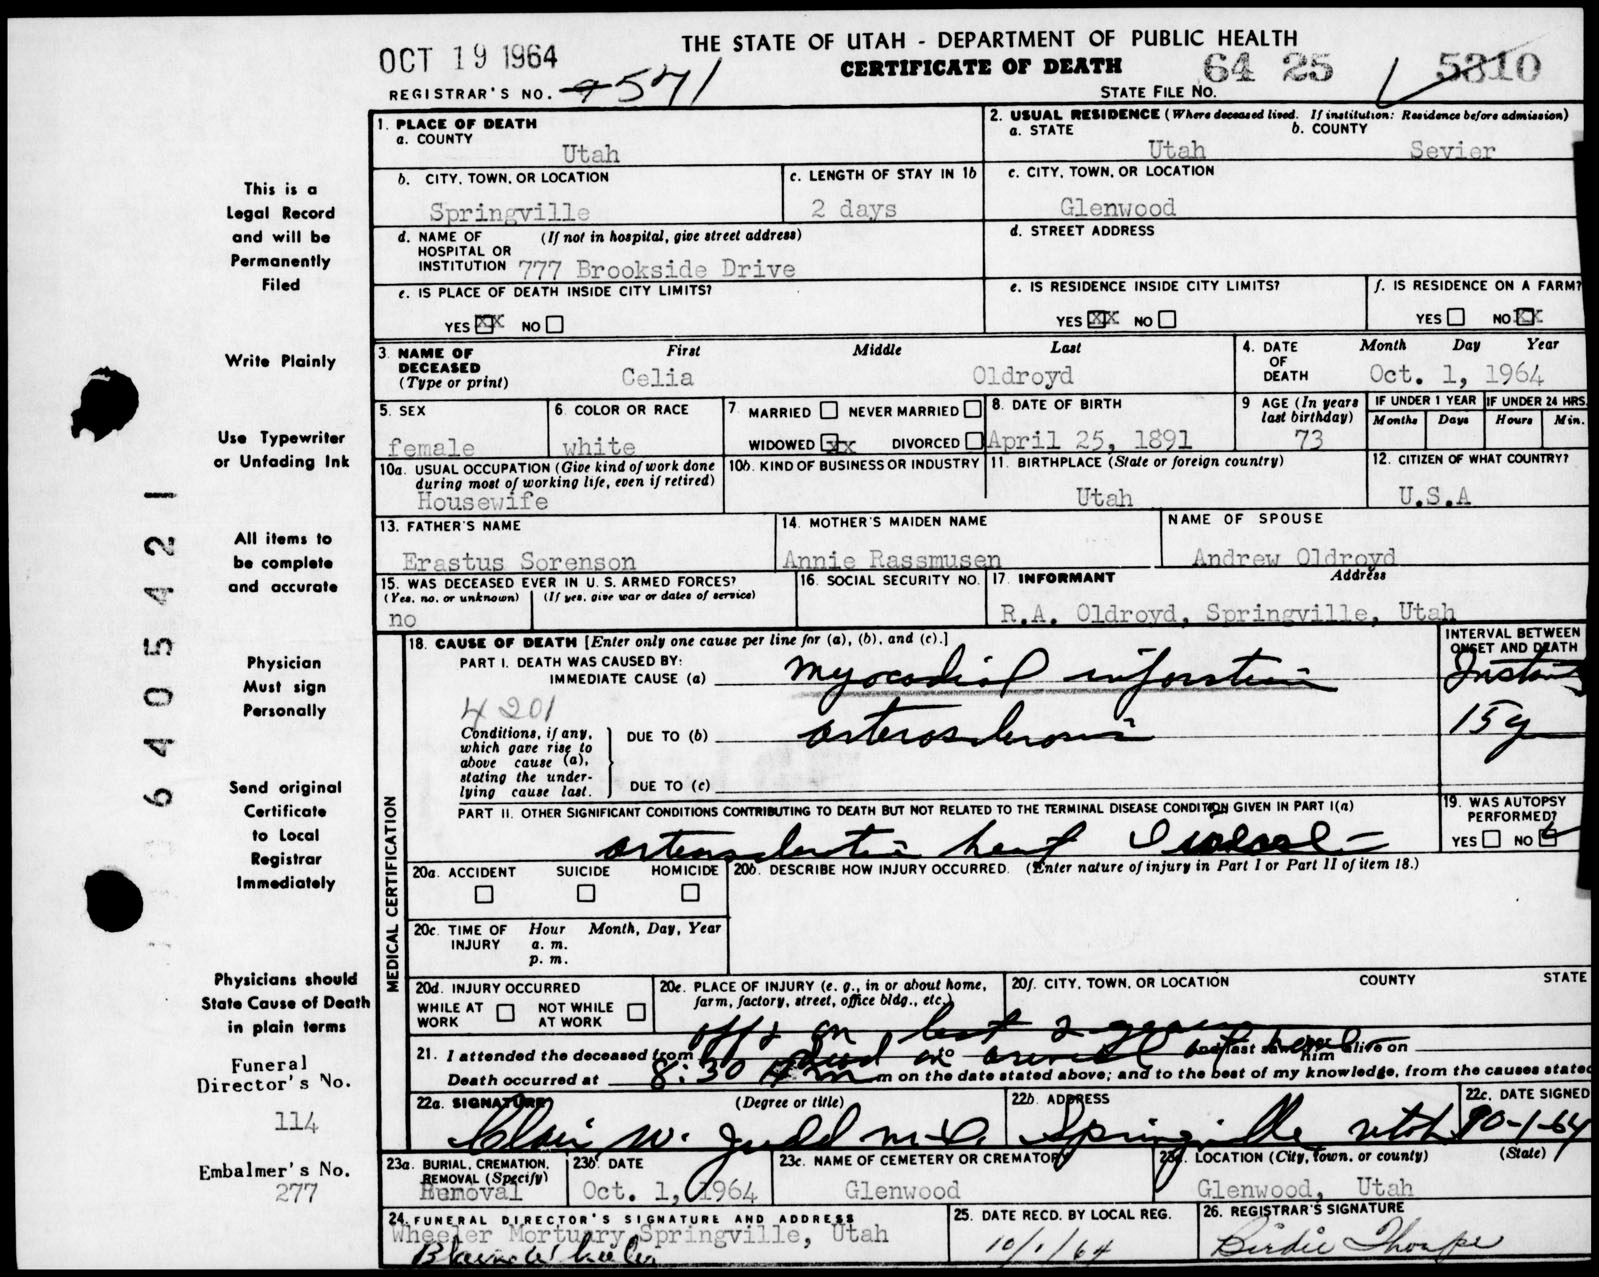 OCT 19 1964
THE STATE OF UTAH - DEPARTMENT OF PUBLIC HEALTH
CERTIFICATE OF DEATH
64 25 5310
REGISTRAR'S NO. 571
STATE FILE NO.
1. PLACE OF DEATH
a. COUNTY
Utah
2. USUAL RESIDENCE (Where deceased lived. If institution: Residence before admission)
a. STATE b. COUNTY
Utah Sevier
b. CITY, TOWN, OR LOCATION
Springville
c. LENGTH OF STAY IN 1b
2 days
c. CITY, TOWN, OR LOCATION
Glenwood
d. NAME OF (If not in hospital, give street address)
HOSPITAL OR
INSTITUTION 777 Brookside Drive
d. STREET ADDRESS
e. IS PLACE OF DEATH INSIDE CITY LIMITS?
YES XX NO
e. IS RESIDENCE INSIDE CITY LIMITS?
YES XX NO
f. IS RESIDENCE ON A FARM?
YES NO XX
3. NAME OF DECEASED (Type or print)
First Middle Last
Celia Oldroyd
4. DATE OF DEATH
Month Day Year
Oct. 1, 1964
5. SEX
female
6. COLOR OR RACE
white
7. MARRIED NEVER MARRIED
WIDOWED XX DIVORCED
8. DATE OF BIRTH
April 25, 1891
9 AGE (In years last birthday)
73
IF UNDER 1 YEAR IF UNDER 24 HRS.
Months Days Hours Min.
10a. USUAL OCCUPATION (Give kind of work done
during most of working life, even if retired)
Housewife
10b. KIND OF BUSINESS OR INDUSTRY
11. BIRTHPLACE (State or foreign country)
Utah
12. CITIZEN OF WHAT COUNTRY?
U.S.A
13. FATHER'S NAME
Erastus Sorenson
14. MOTHER'S MAIDEN NAME
Annie Rassmusen
NAME OF SPOUSE
Andrew Oldroyd
15. WAS DECEASED EVER IN U. S. ARMED FORCES?
(Yes, no, or unknown) (If yes, give war or dates of service)
no
16. SOCIAL SECURITY NO.
17. INFORMANT Address
R.A. Oldroyd, Springville, Utah
18. CAUSE OF DEATH [Enter only one cause per line for (a), (b), and (c).]
INTERVAL BETWEEN
ONSET AND DEATH
PART I. DEATH WAS CAUSED BY:
IMMEDIATE CAUSE (a) myocadial infarction
4201
Conditions, if any,
which gave rise to
above cause (a),
stating the under-
lying cause last.
DUE TO (b) arterosclerosis 15 y
DUE TO (c)
PART II. OTHER SIGNIFICANT CONDITIONS CONTRIBUTING TO DEATH BUT NOT RELATED TO THE TERMINAL DISEASE CONDITION GIVEN IN PART I(a)
heart disease
19. WAS AUTOPSY
PERFORMED?
YES NO
20a. ACCIDENT SUICIDE HOMICIDE
20b. DESCRIBE HOW INJURY OCCURRED. (Enter nature of injury in Part I or Part II of item 18.)
20c. TIME OF INJURY
Hour Month, Day, Year
a. m.
p. m.
20d. INJURY OCCURRED
WHILE AT WORK NOT WHILE AT WORK
20e. PLACE OF INJURY (e. g., in or about home,
farm, factory, street, office bldg., etc.)
20f. CITY, TOWN, OR LOCATION COUNTY STATE
off & on last 2 years
21. I attended the deceased from dead on arrival and last saw him alive on
Death occurred at 8:30 m on the date stated above; and to the best of my knowledge, from the causes stated
22a. SIGNATURE (Degree or title)
Clair W. Judd M.D.
22b. ADDRESS
Springville Utah
22c. DATE SIGNED
10-1-64
23a. BURIAL, CREMATION,
REMOVAL (Specify)
Removal
23b. DATE
Oct. 1, 1964
23c. NAME OF CEMETERY OR CREMATORY
Glenwood
23d. LOCATION (City, town, or county) (State)
Glenwood, Utah
24. FUNERAL DIRECTOR'S SIGNATURE AND ADDRESS
Wheeler Mortuary Springville, Utah
25. DATE RECD. BY LOCAL REG.
10/1/64
26. REGISTRAR'S SIGNATURE
Birdie Thorpe
MEDICAL CERTIFICATION
This is a
Legal Record
and will be
Permanently
Filed
Write Plainly
Use Typewriter
or Unfading Ink
All items to
be complete
and accurate
Physician
Must sign
Personally
Send original
Certificate
to Local
Registrar
Immediately
Physicians should
State Cause of Death
in plain terms
Funeral
Director's No.
114
Embalmer's No.
277
64055421